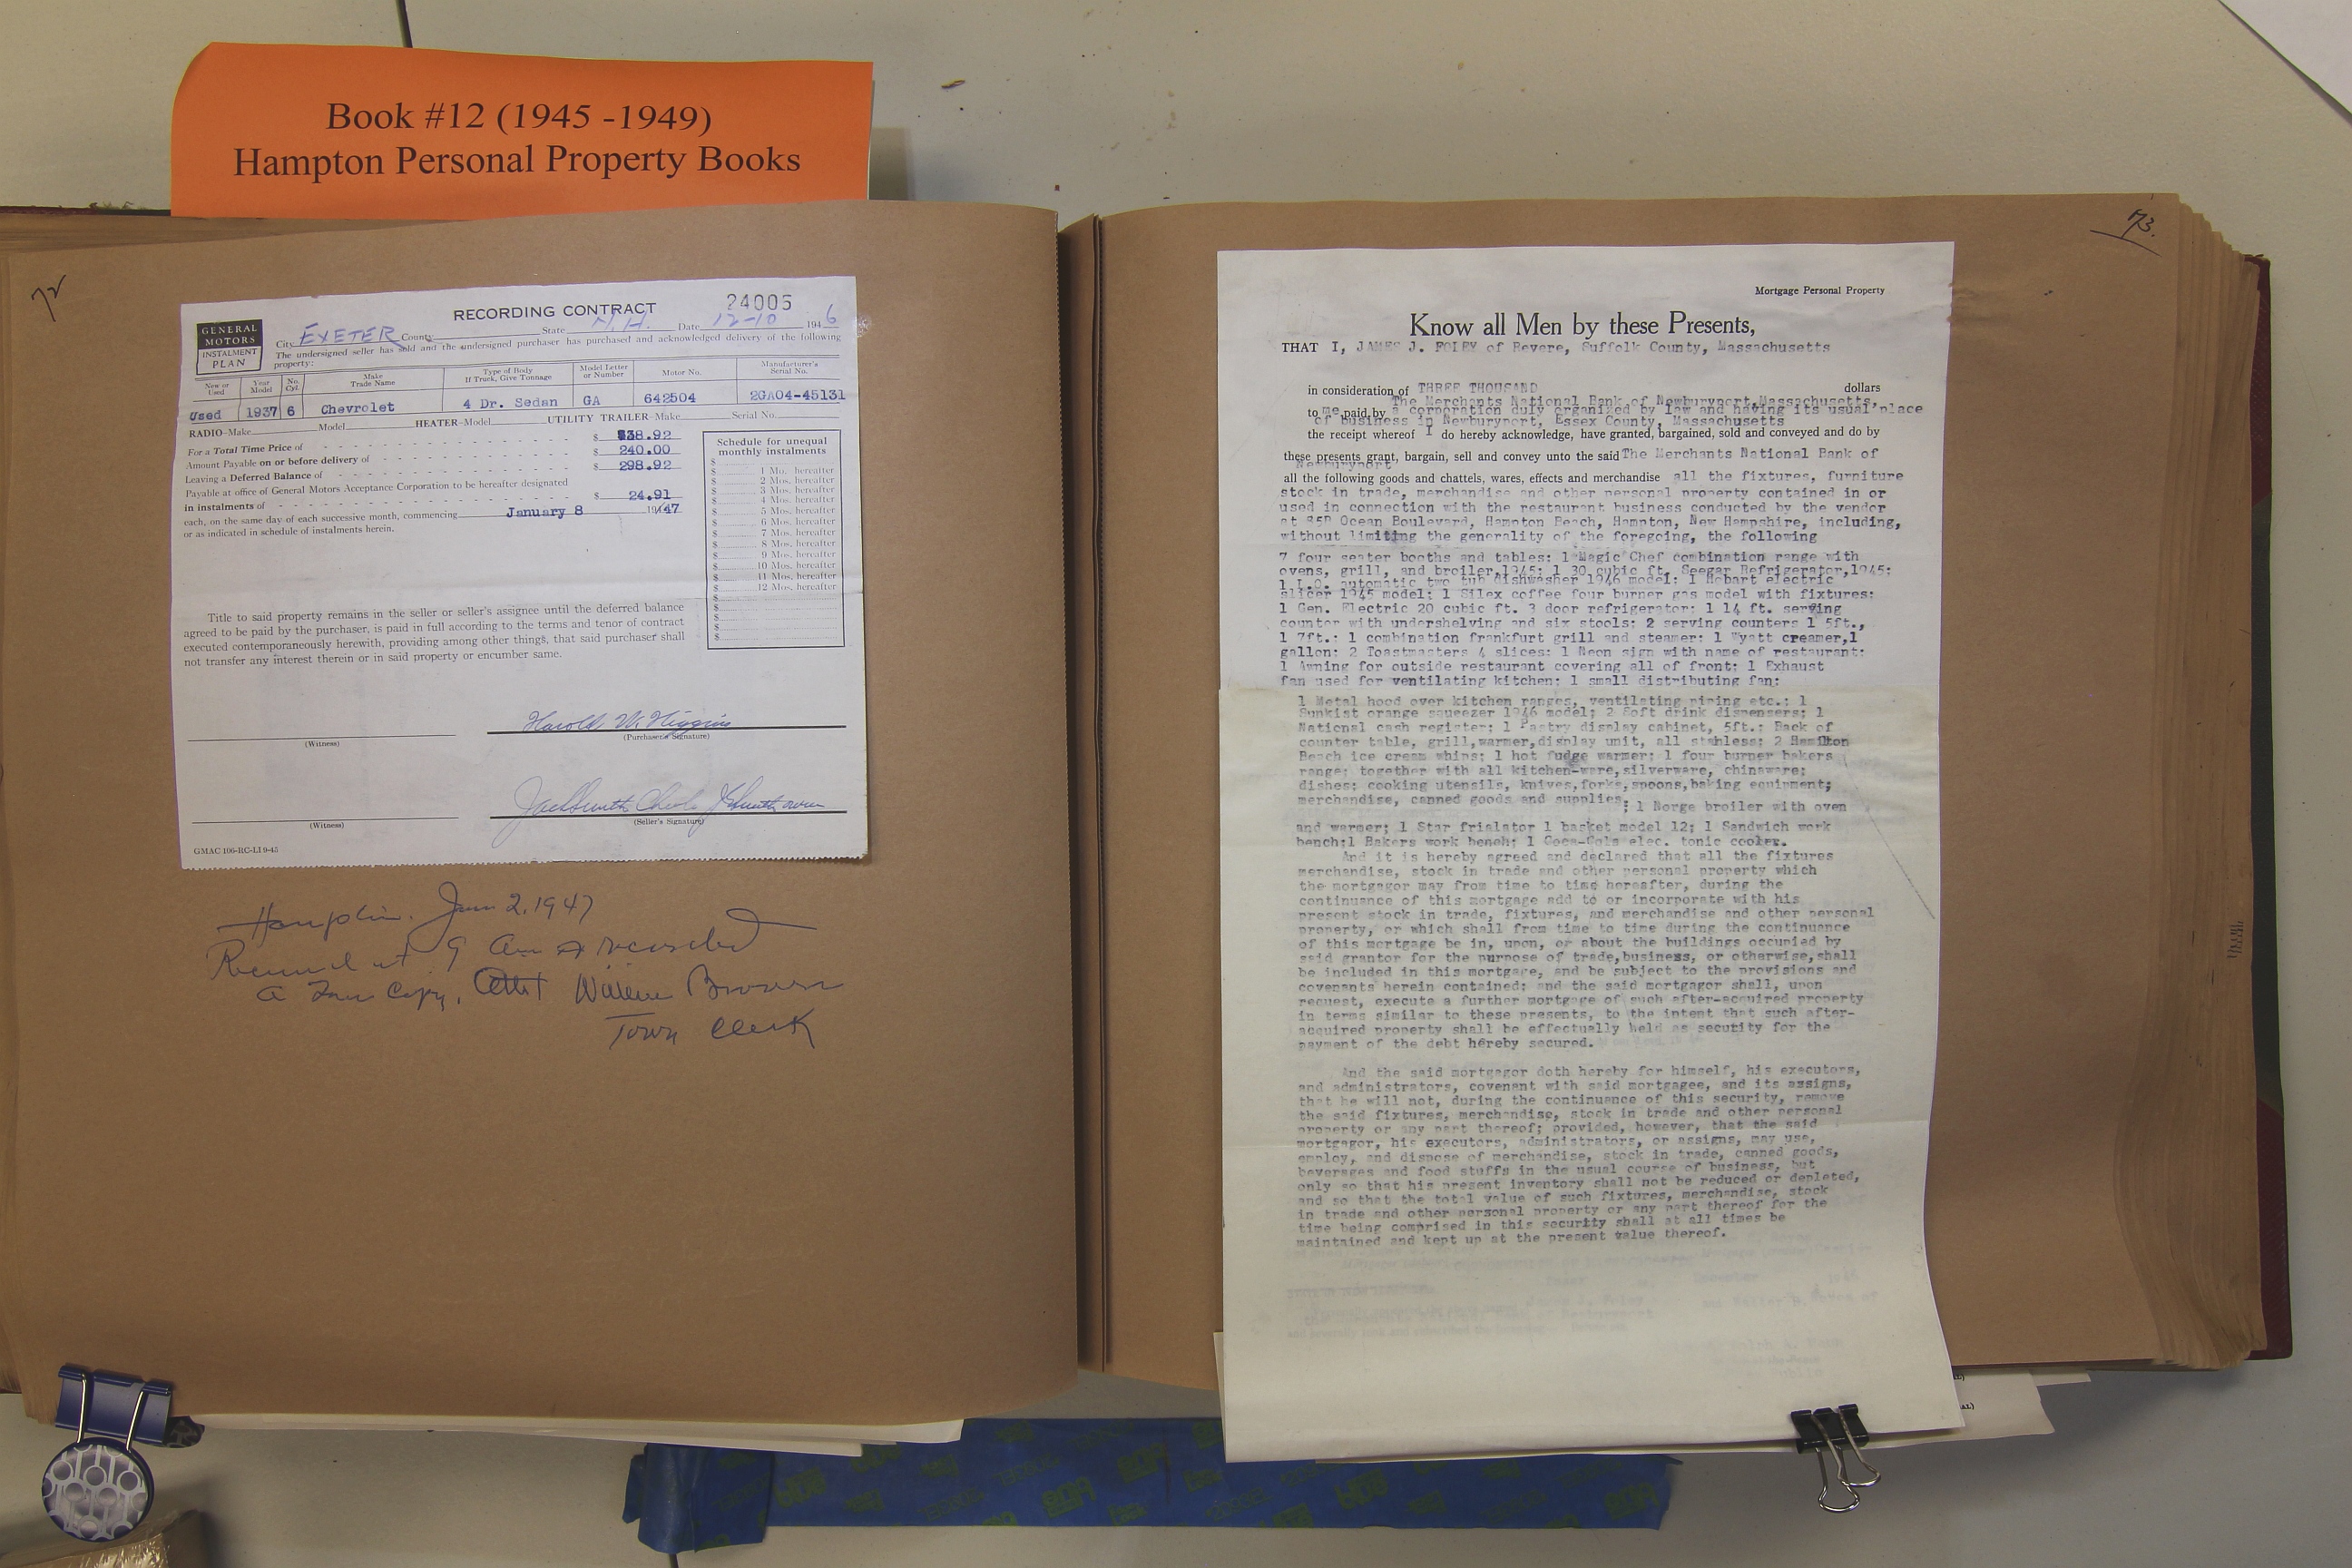 Book #12 (1945 -1949)
Hampton Personal Property Books
72
RECORDING CONTRACT
24005
GENERAL
MOTORS
INSTALMENT
PLAN
City EXETER County State N.H. Date 12-10 1946
The undersigned seller has sold and the undersigned purchaser has purchased and acknowledged delivery of the following
property:
New or Used Year Model No. Cyl. Make Trade Name Type of Body If Truck, Give Tonnage Model Letter or Number Motor No. Manufacturer's Serial No.
Used 1937 6 Chevrolet 4 Dr. Sedan GA 642504 2GA04-45131
RADIO-Make Model HEATER-Model UTILITY TRAILER-Make Serial No.
For a Total Time Price of $ 538.92
Amount Payable on or before delivery of $ 240.00
Leaving a Deferred Balance of $ 298.92
Payable at office of General Motors Acceptance Corporation to be hereafter designated
in instalments of $ 24.91
each, on the same day of each successive month, commencing January 8 1947
or as indicated in schedule of instalments herein.
Schedule for unequal
monthly instalments
$
$ 1 Mo. hereafter
$ 2 Mos. hereafter
$ 3 Mos. hereafter
$ 4 Mos. hereafter
$ 5 Mos. hereafter
$ 6 Mos. hereafter
$ 7 Mos. hereafter
$ 8 Mos. hereafter
$ 9 Mos. hereafter
$ 10 Mos. hereafter
$ 11 Mos. hereafter
$ 12 Mos. hereafter
$
$
$
$
$
Title to said property remains in the seller or seller's assignee until the deferred balance
agreed to be paid by the purchaser, is paid in full according to the terms and tenor of contract
executed contemporaneously herewith, providing among other things, that said purchaser shall
not transfer any interest therein or in said property or encumber same.
Harold W. Higgins
(Witness) (Purchaser's Signature)
Jack Smith Chev. J E Smith owner
(Witness) (Seller's Signature)
GMAC 106-RC-LI 9-45
Hampton. Jan 2, 1947
Received at 9 Am & recorded
A True Copy, Attest William Brown
Town Clerk
73.
Mortgage Personal Property
Know all Men by these Presents,
THAT I, JAMES J. FOLEY of Revere, Suffolk County, Massachusetts
in consideration of THREE THOUSAND dollars
The Merchants National Bank of Newburyport, Massachusetts,
to me paid by a corporation duly organized by law and having its usual place
of business in Newburyport, Essex County, Massachusetts
the receipt whereof I do hereby acknowledge, have granted, bargained, sold and conveyed and do by
these presents grant, bargain, sell and convey unto the said The Merchants National Bank of
Newburyport
all the following goods and chattels, wares, effects and merchandise all the fixtures, furniture
stock in trade, merchandise and other personal property contained in or
used in connection with the restaurant business conducted by the vendor
at 85B Ocean Boulevard, Hampton Beach, Hampton, New Hampshire, including,
without limiting the generality of the foregoing, the following
7 four seater booths and tables: 1 Magic Chef combination range with
ovens, grill, and broiler, 1945: 1 30 cubic ft. Seegar Refrigerator, 1945:
automatic two tub dishwasher 1946 model: 1 Hobart electric
slicer 1945 model: 1 Silex coffee four burner gas model with fixtures:
1 Gen. Electric 20 cubic ft. 3 door refrigerator: 1 14 ft. serving
counter with undershelving and six stools: 2 serving counters 1 5ft.,
1 7ft.: 1 combination frankfurt grill and steamer: 1 Wyatt creamer,1
gallon: 2 Toastmasters 4 slices: 1 Neon sign with name of restaurant:
1 Awning for outside restaurant covering all of front: 1 Exhaust
fan used for ventilating kitchen: 1 small distributing fan:
1 Metal hood over kitchen ranges, ventilating piping etc.: 1
Sunkist orange squeezer 1946 model; 2 Soft drink dispensers; 1
National cash register: 1 Pastry display cabinet, 5ft.: Back of
counter table, grill,warmer,display unit, all stainless: 2 Hamilton
Beach ice cream whips: 1 hot fudge warmer: 1 four burner bakers
range; together with all kitchen-ware,silverware, chinaware;
dishes; cooking utensils, knives,forks,spoons,baking equipment;
merchandise, canned goods and supplies; 1 Norge broiler with oven
and warmer; 1 Star frialator 1 basket model 12; 1 Sandwich work
bench;1 Bakers work bench; 1 Coca-Cola elec. tonic cooler.
And it is hereby agreed and declared that all the fixtures
merchandise, stock in trade and other personal property which
the mortgagor may from time to time hereafter, during the
continuance of this mortgage add to or incorporate with his
present stock in trade, fixtures, and merchandise and other personal
property, or which shall from time to time during the continuance
of this mortgage be in, upon, or about the buildings occupied by
said grantor for the purpose of trade,business, or otherwise,shall
be included in this mortgage, and be subject to the provisions and
covenants herein contained: and the said mortgagor shall, upon
request, execute a further mortgage of such after-acquired property
in terms similar to these presents, to the intent that such after-
acquired property shall be effectually held as security for the
payment of the debt hereby secured.
And the said mortgagor doth hereby for himself, his executors,
and administrators, covenant with said mortgagee, and its assigns,
that he will not, during the continuance of this security, remove
the said fixtures, merchandise, stock in trade and other personal
property or any part thereof; provided, however, that the said
mortgagor, his executors, administrators, or assigns, may use,
employ, and dispose of merchandise, stock in trade, canned goods,
beverages and food stuffs in the usual course of business, but
only so that his present inventory shall not be reduced or depleted,
and so that the total value of such fixtures, merchandise, stock
in trade and other personal property or any part thereof for the
time being comprised in this security shall at all times be
maintained and kept up at the present value thereof.